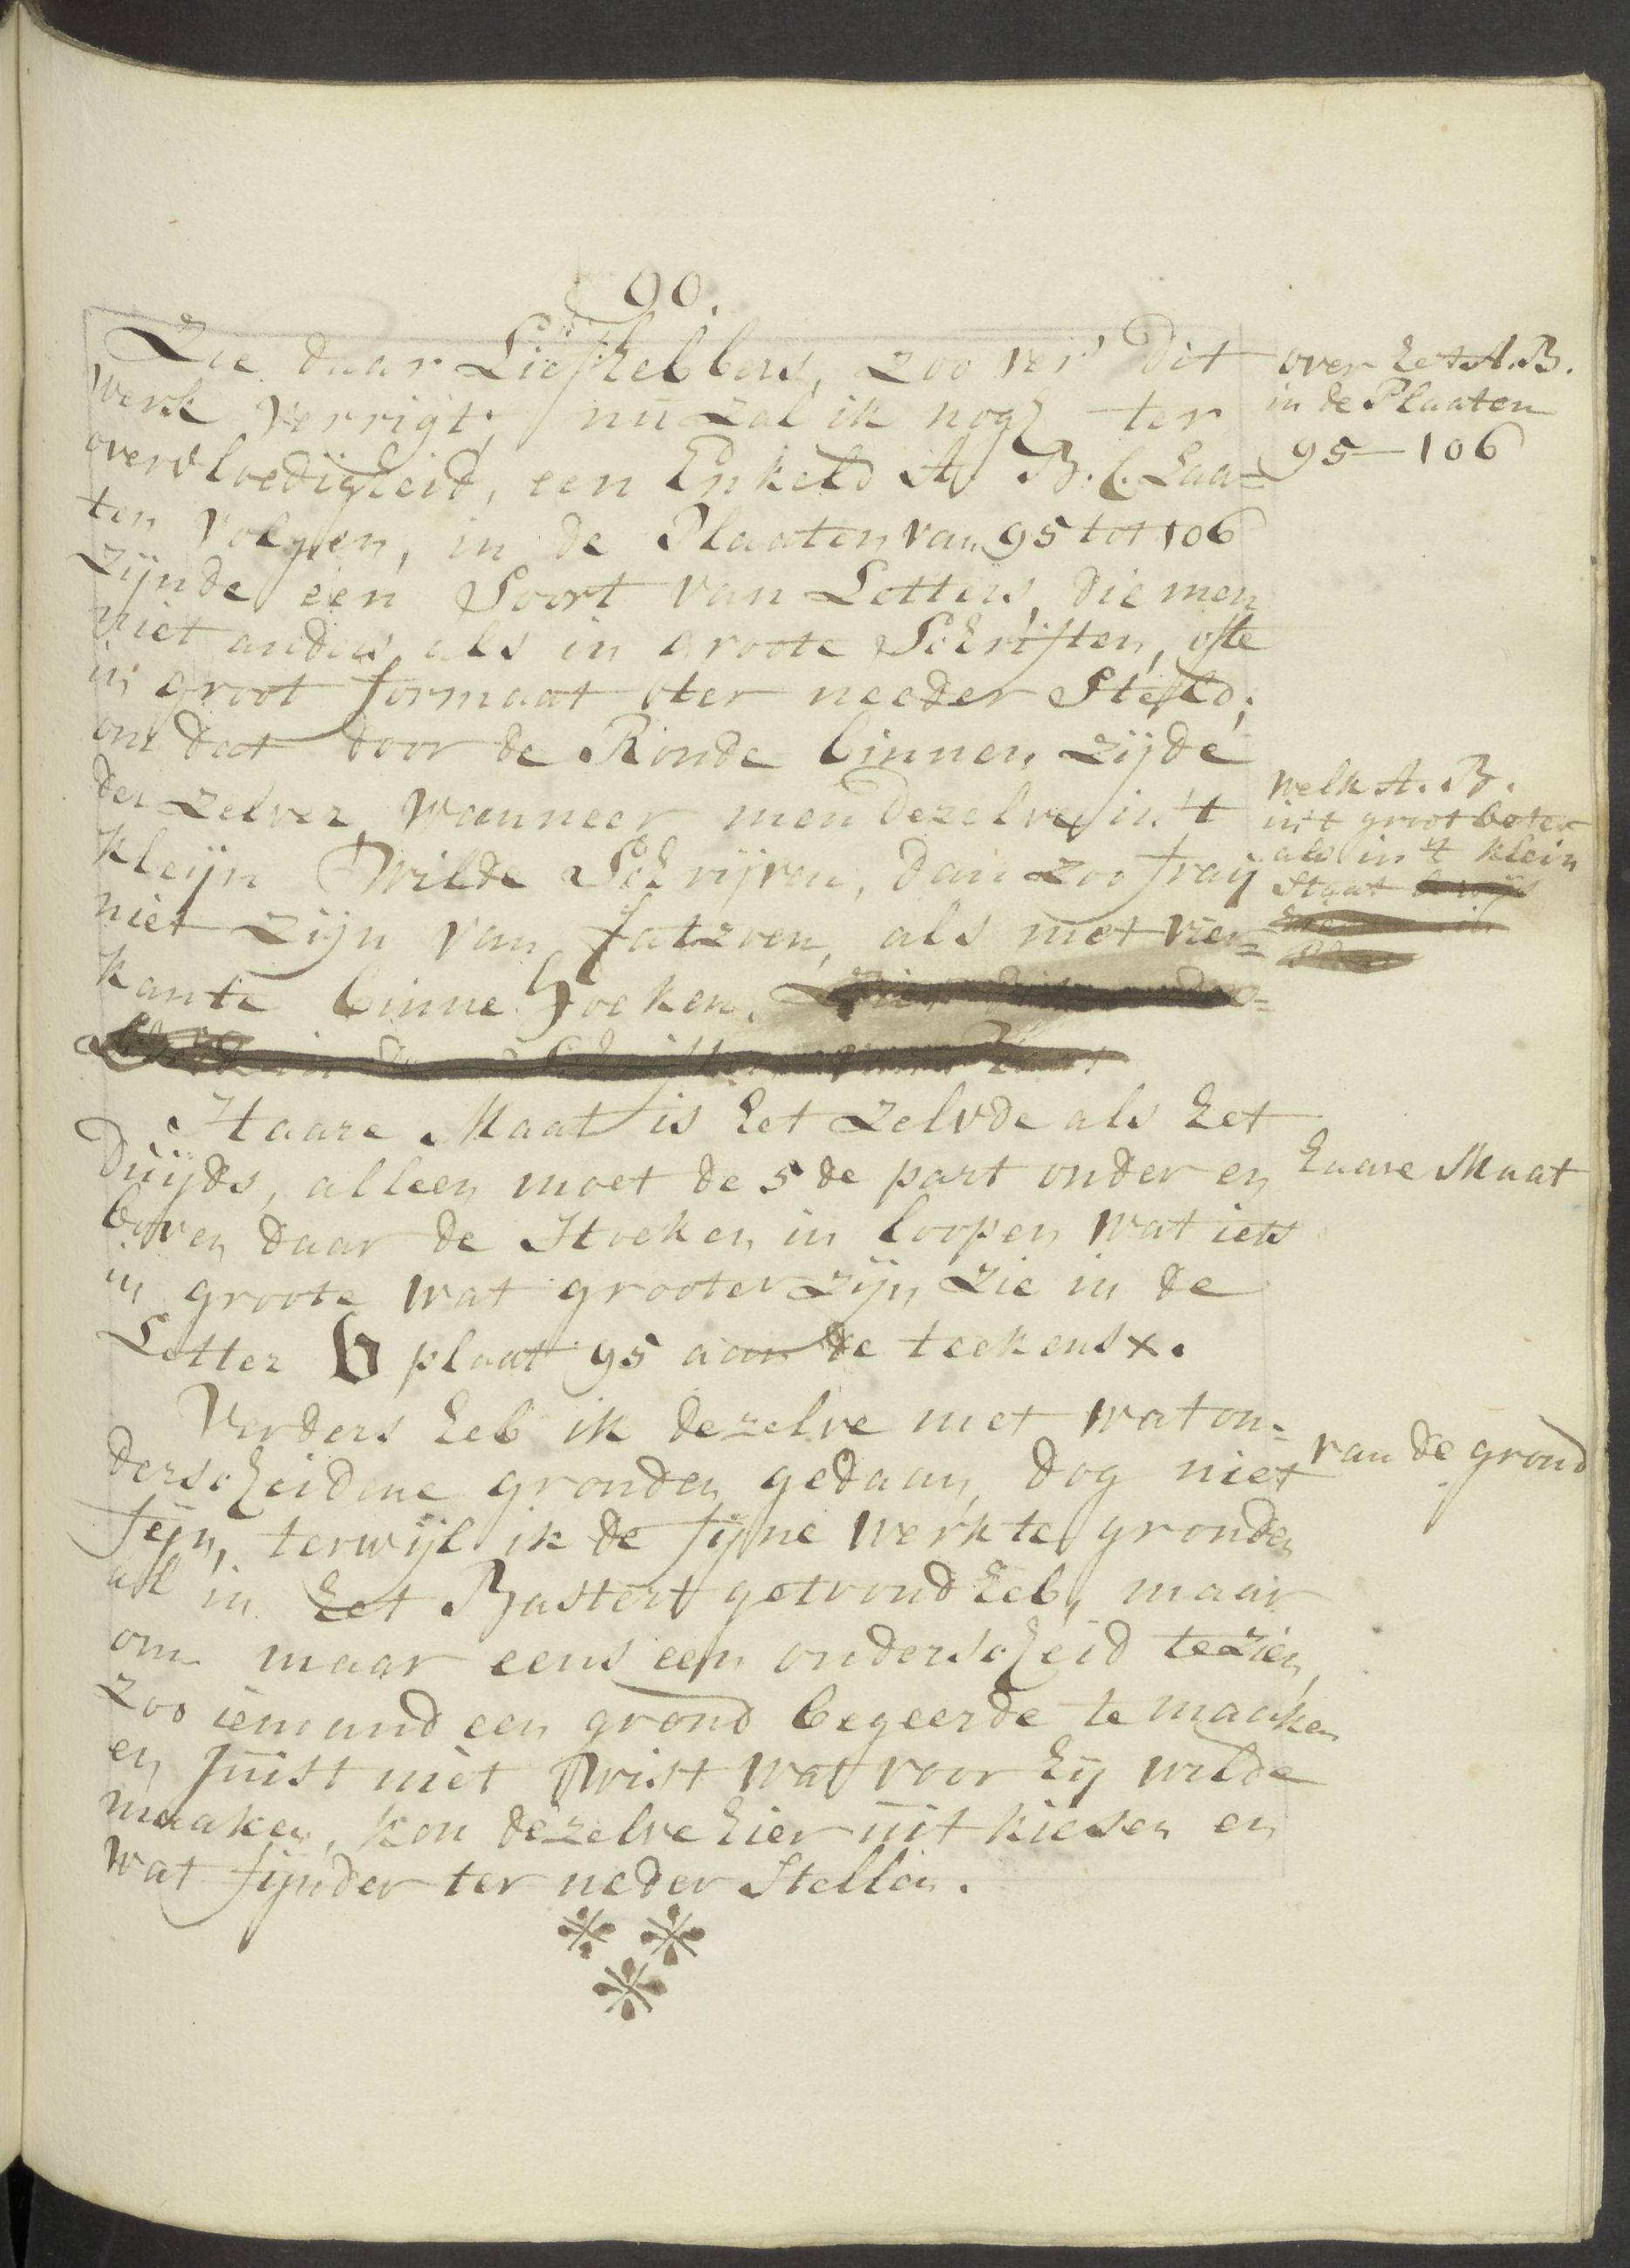 90.
Zie daar Liefhebbers, zoo ver' Dit
werk verrigt, nu zal ik nog ter
overvloedigheid, een Enkeld A. B. C. Laa=
ten volgen, in de Plaaten van 95 tot 106
zijnde een Soort van Letters, die men
niet anders als in groote Schriften, ofte
in groot formaat ter needer Steld;
om dat door de Ronde binnen zijde
der zelver, wanneer men dezelve in't
kleijn Wilde Schrijven, dan zoo fraij
niet zijn van fatzoen, als met vier=
kante binne Hoeken.
over het A. B.
in de Plaaten
95—106
welk A. B.
in't groot beter
als in 't klein
Staat
Haare Maat is het zelvde als het
Duijds, alleen moet de 5de part onder en
boven daar de Hoeken in loopen wat iets
in groote wat grooter zijn zie in de
Letter b plaat 95 aan de teekens x.
haare Maat
Verders heb ik dezelve met wat on=
derscheidene gronden gedaan, dog niet
fijn, terwijl ik de fijne werkte gronden
al in het Bastert getoond heb, maar
om maar eens een onderscheid te zien,
zoo iemand een grond begeerde te maaken
en Juist niet Wist wat voor hij wilde
maaken, kon dezelve hier uit kiesen en
wat fijnder ter neder Stellen.
van de grond